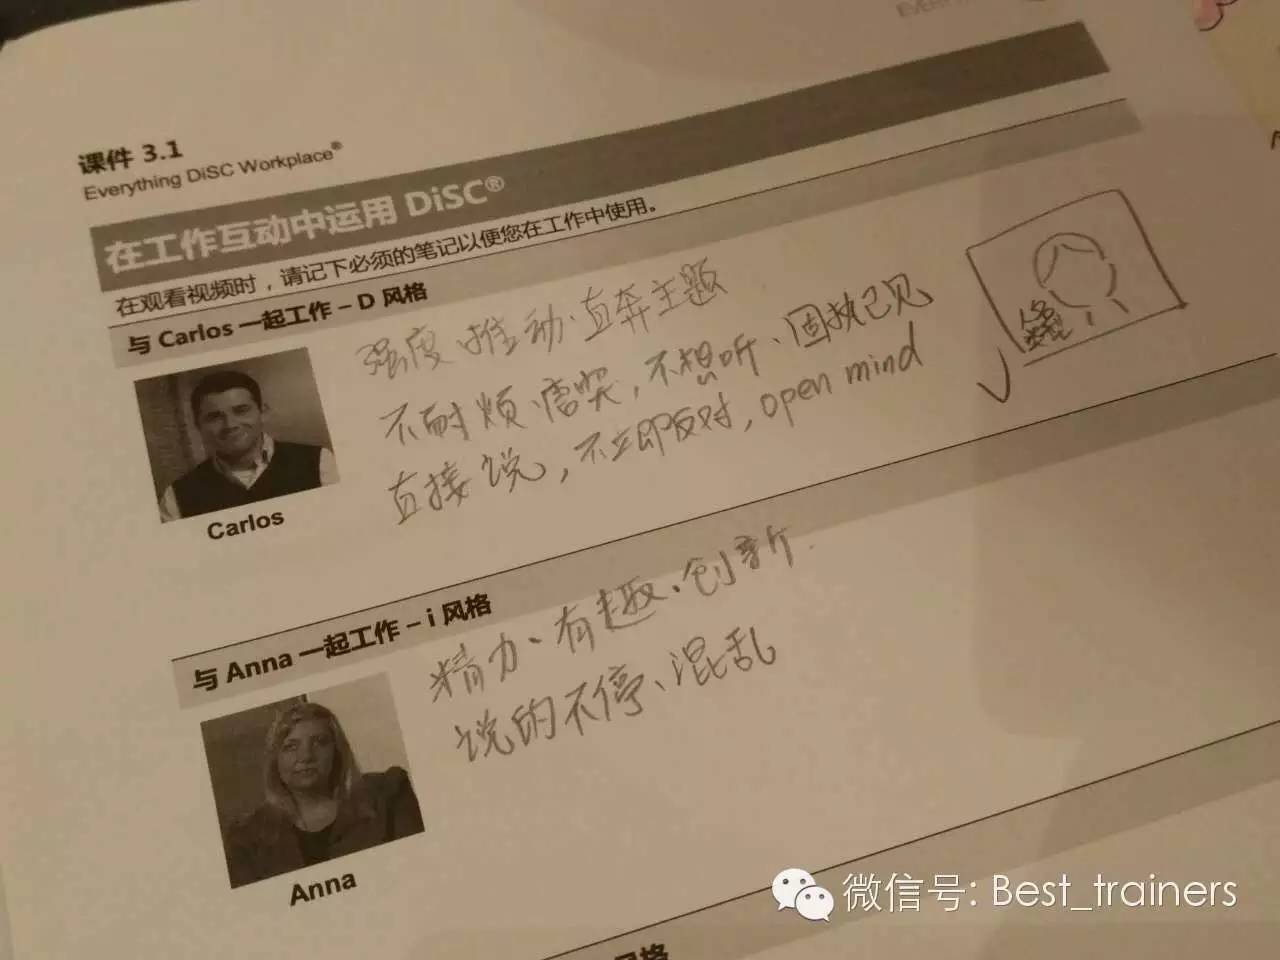 课件 3.1
Everything DiSC Workplace®
在工作互动中运用 DiSC®
在观看视频时，请记下必须的笔记以便您在工作中使用。
与 Carlos 一起工作 – D 风格
强度、推动、直奔主题
不耐烦、唐突，不想听、固执己见
直接说，不立即反对，open mind
Carlos
与 Anna 一起工作 – i 风格
精力、有趣、创新
说的不停、混乱
Anna
风格
微信号: Best_trainers